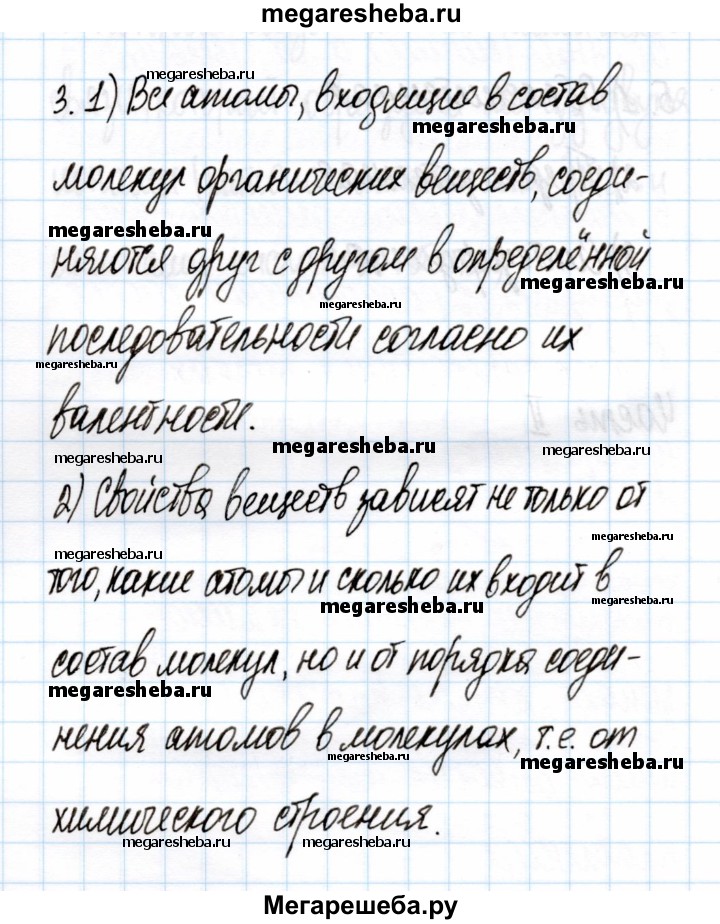 megaresheba.ru
megaresheba.ru
3. 1) Все атомы, входящие в состав
megaresheba.ru
молекул органических веществ, соеди-
megaresheba.ru
няются друг с другом в определённой
megaresheba.ru
megaresheba.ru
последовательности согласно их
megaresheba.ru
валентности.
megaresheba.ru
megaresheba.ru
2) Свойства веществ зависят не только от
megaresheba.ru
megaresheba.ru
того, какие атомы и сколько их входит в
megaresheba.ru
состав молекул, но и от порядка соеди-
megaresheba.ru
нения атомов в молекулах, т.е. от
megaresheba.ru
megaresheba.ru
химического строения.
megaresheba.ru
megaresheba.ru
Мегарешеба.ру